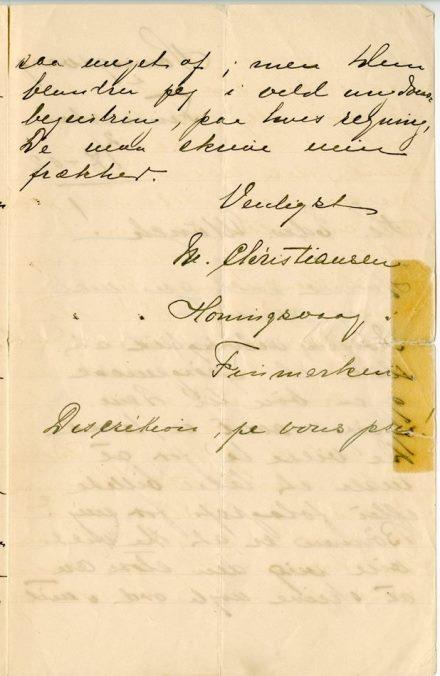 saa meget af; men Dem
beundrer jeg i veld ungdoms-
begeistring, paa hvis regning,
De maa skrive min
frækhed.
Venligst
M. Christiansen
Honningsvaag
Finmarken
Discrétion, je vous prie!